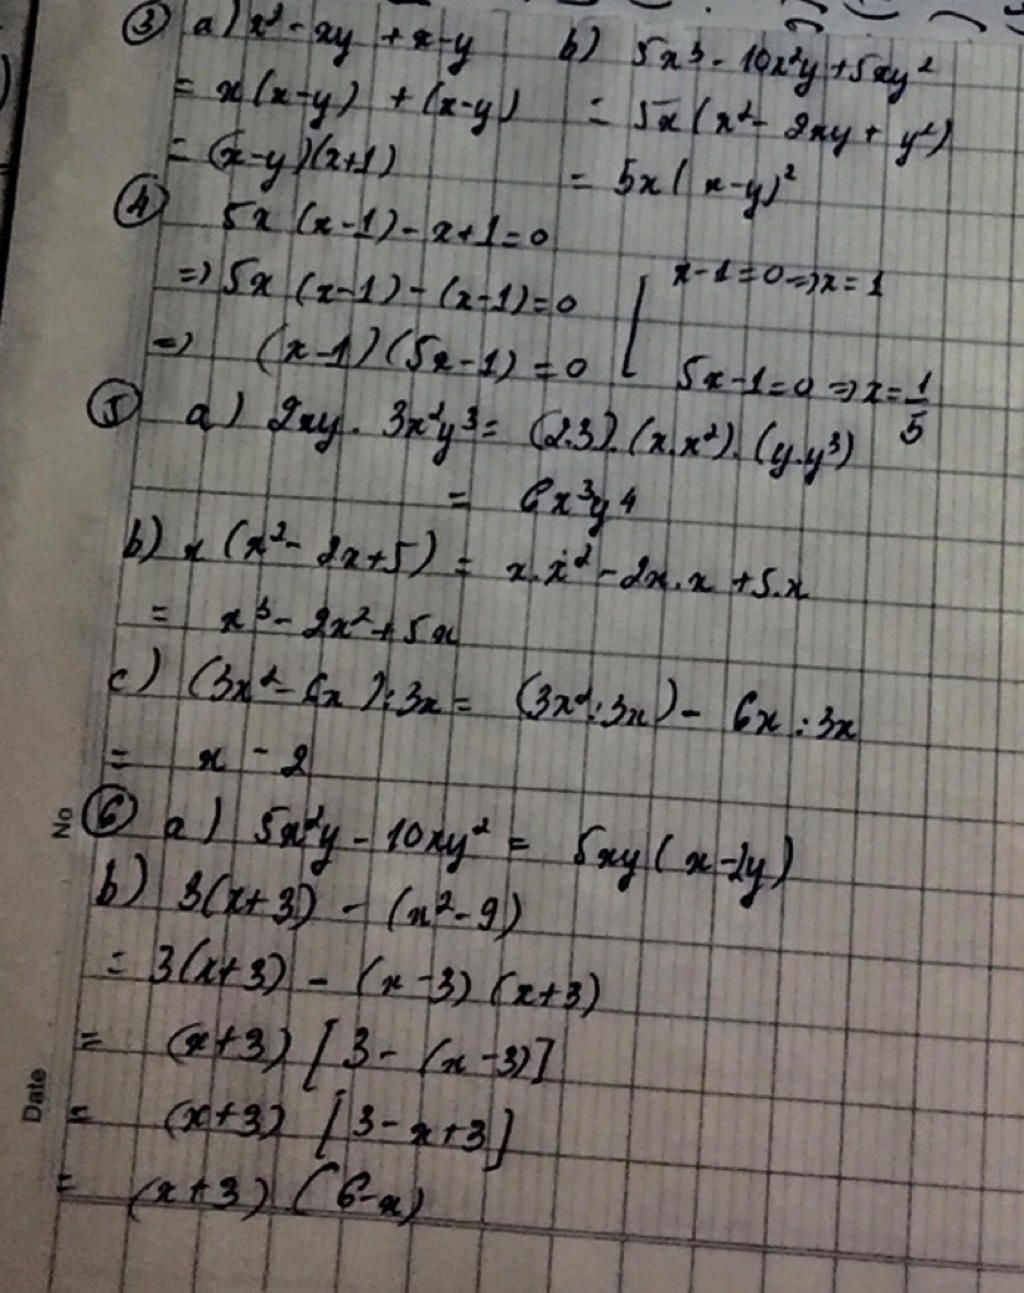 ③ a) x² - xy + x - y
= x(x-y) + (x-y)
= (x-y)(x+1)
b) 5x³ - 10x²y + 5xy²
= 5x(x² - 2xy + y²)
= 5x(x-y)²
④ 5x(x-1) - x+1=0
=> 5x(x-1) - (x-1)=0
=> (x-1)(5x-1)=0
[ x-1=0 => x=1
5x-1=0 => x=1/5
⑤ a) 2xy . 3x²y³ = (2.3).(x.x²).(y.y³)
= 6x³y⁴
b) x(x² - 2x+5) = x.x² - 2x.x + 5.x
= x³ - 2x² + 5x
c) (3x² - 6x) : 3x = (3x² : 3x) - 6x : 3x
= x - 2
⑥ a) 5x²y - 10xy² = 5xy(x-2y)
b) 3(x+3) - (x²-9)
= 3(x+3) - (x-3)(x+3)
= (x+3) [3 - (x-3)]
= (x+3) [3-x+3]
= (x+3) (6-x)
No
Date